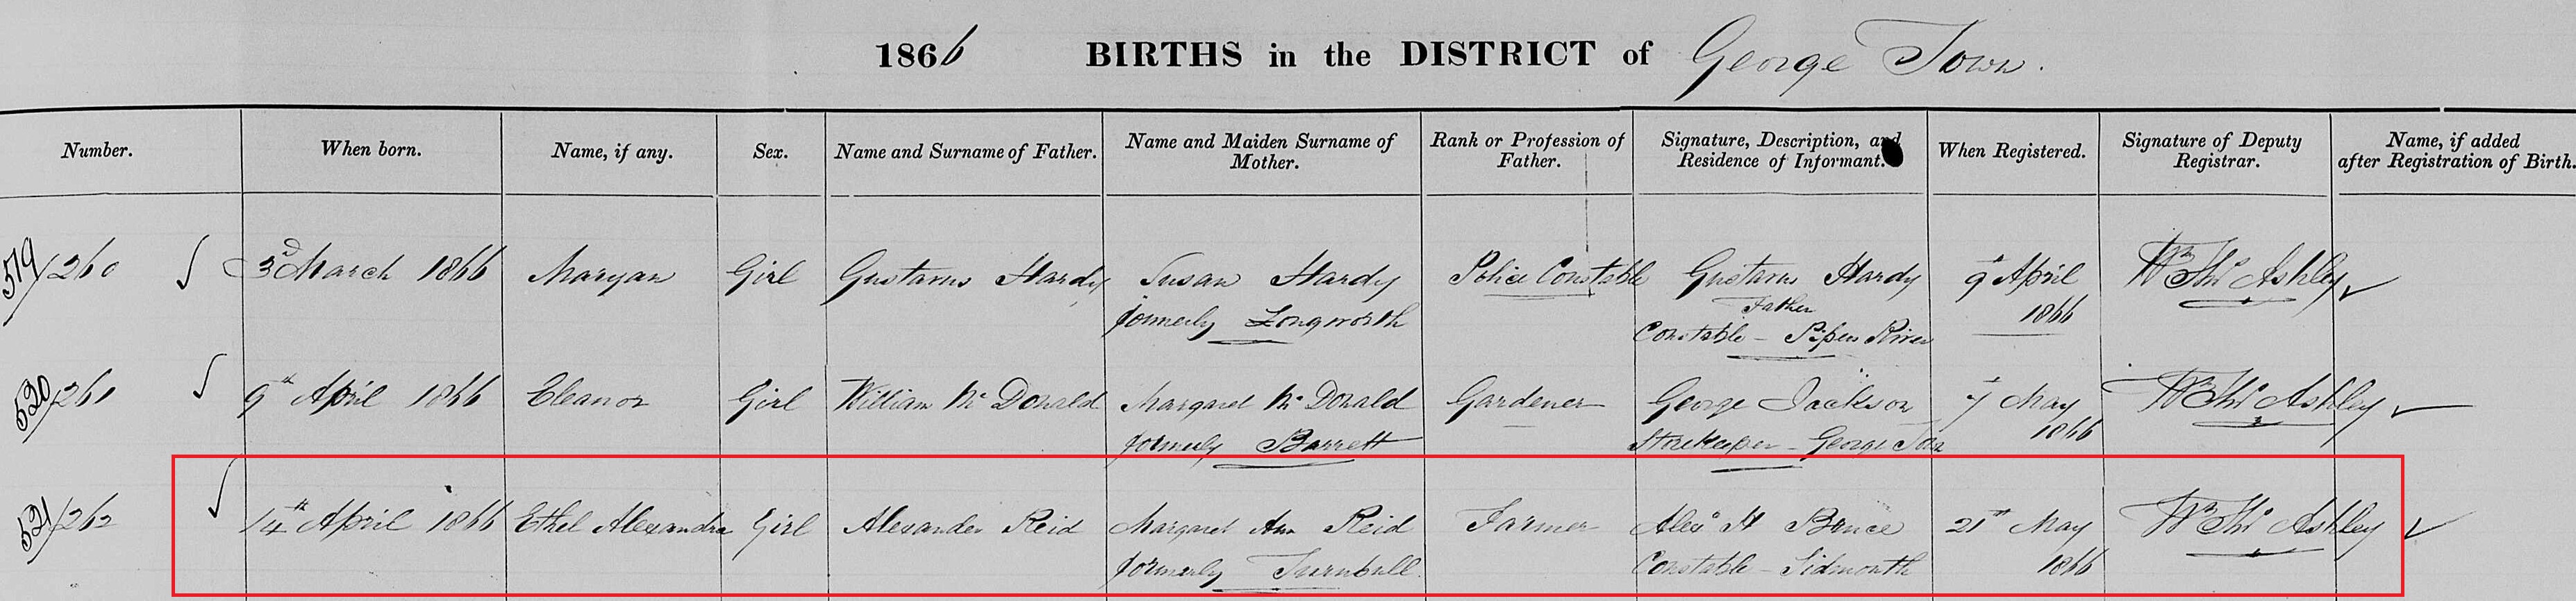 1866 BIRTHS in the DISTRICT of George Town.
Number. When born. Name, if any. Sex. Name and Surname of Father. Name and Maiden Surname of Mother. Rank or Profession of Father. Signature, Description, and Residence of Informant. When Registered. Signature of Deputy Registrar. Name, if added after Registration of Birth.
519/260 3d March 1866 Maryan Girl Gustavus Hardy Susan Hardy Police Constable Gustavus Hardy 9th April Wm Thos Ashley
formerly Longworth Father 1866
Constable - Pipers River
520/261 9th April 1866 Eleanor Girl William Mc Donald Margaret Mc Donald Gardener George Jackson 7th May Wm Thos Ashley
formerly Barrett Storekeeper - George Town 1866
521/262 14th April 1866 Ethel Alexandra Girl Alexander Reid Margaret Ann Reid Farmer Alexr H Bruce 21st May Wm Thos Ashley
formerly Turnbull Constable - Sidmouth 1866